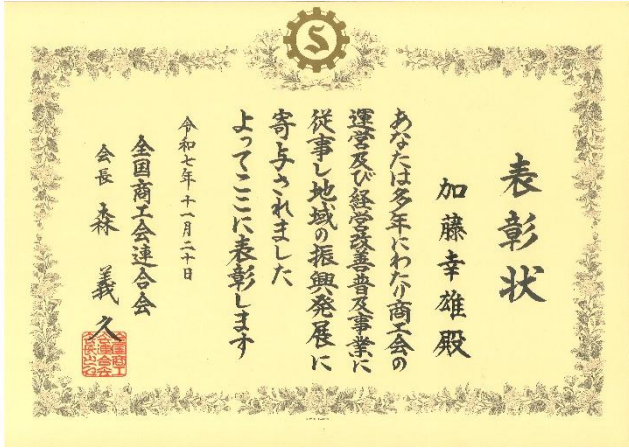 表彰状
加藤幸雄殿
あなたは多年にわたり商工会の
運営及び経営改善普及事業に
従事し地域の振興発展に
寄与されました
よってここに表彰します
令和七年十一月二十日
全国商工会連合会
会長 森義久